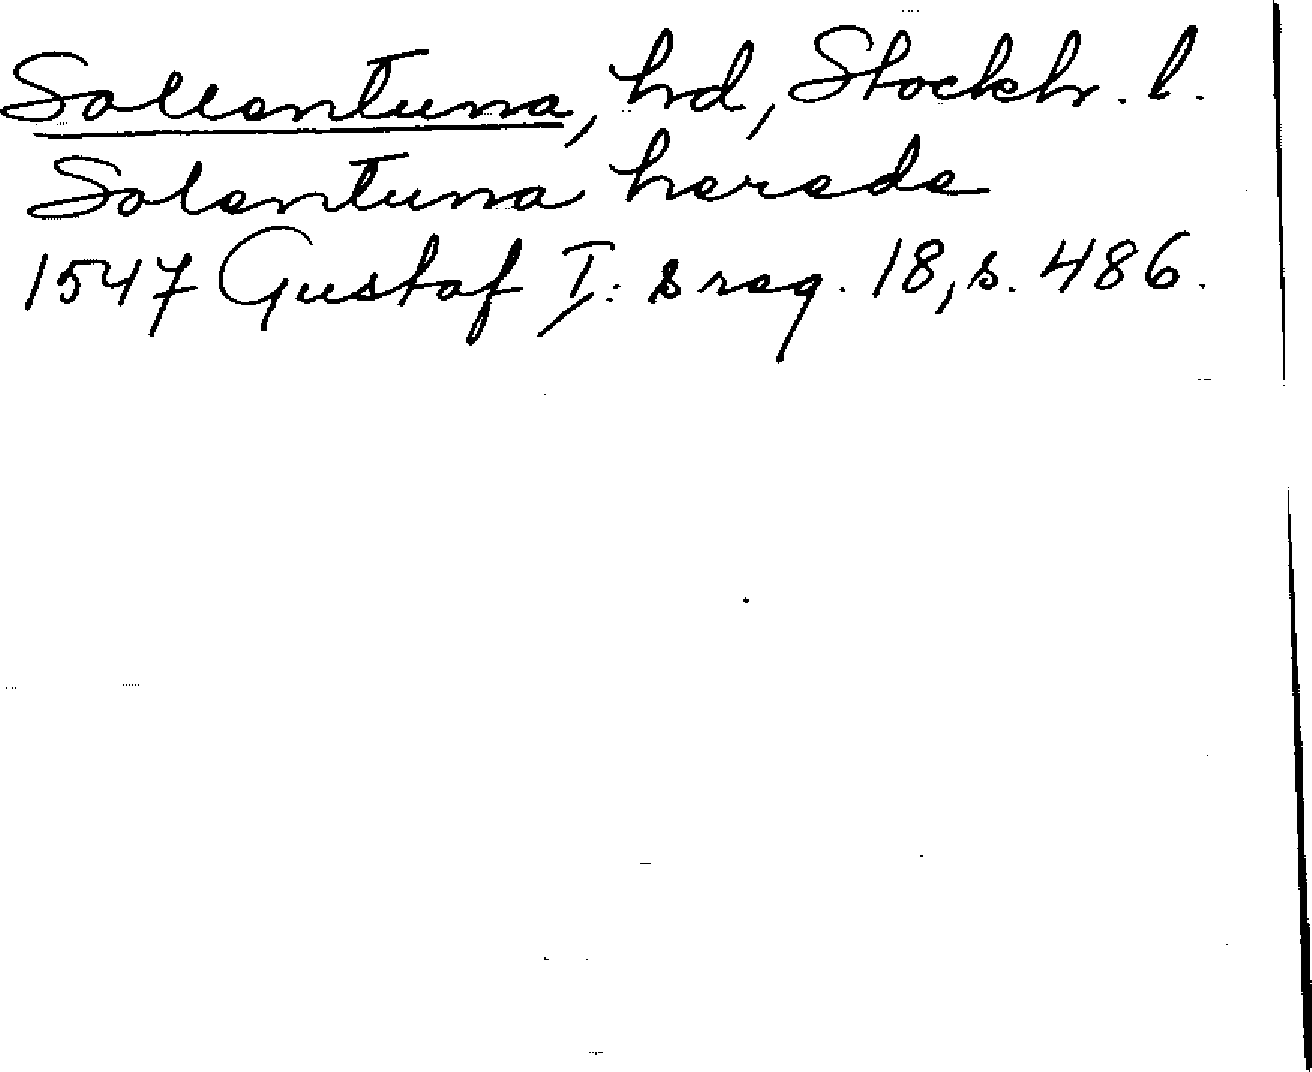 Sollentuna, hd, Stockh. l.
Solentuna herede
1547 Gustaf I: s reg. 18, s. 486.